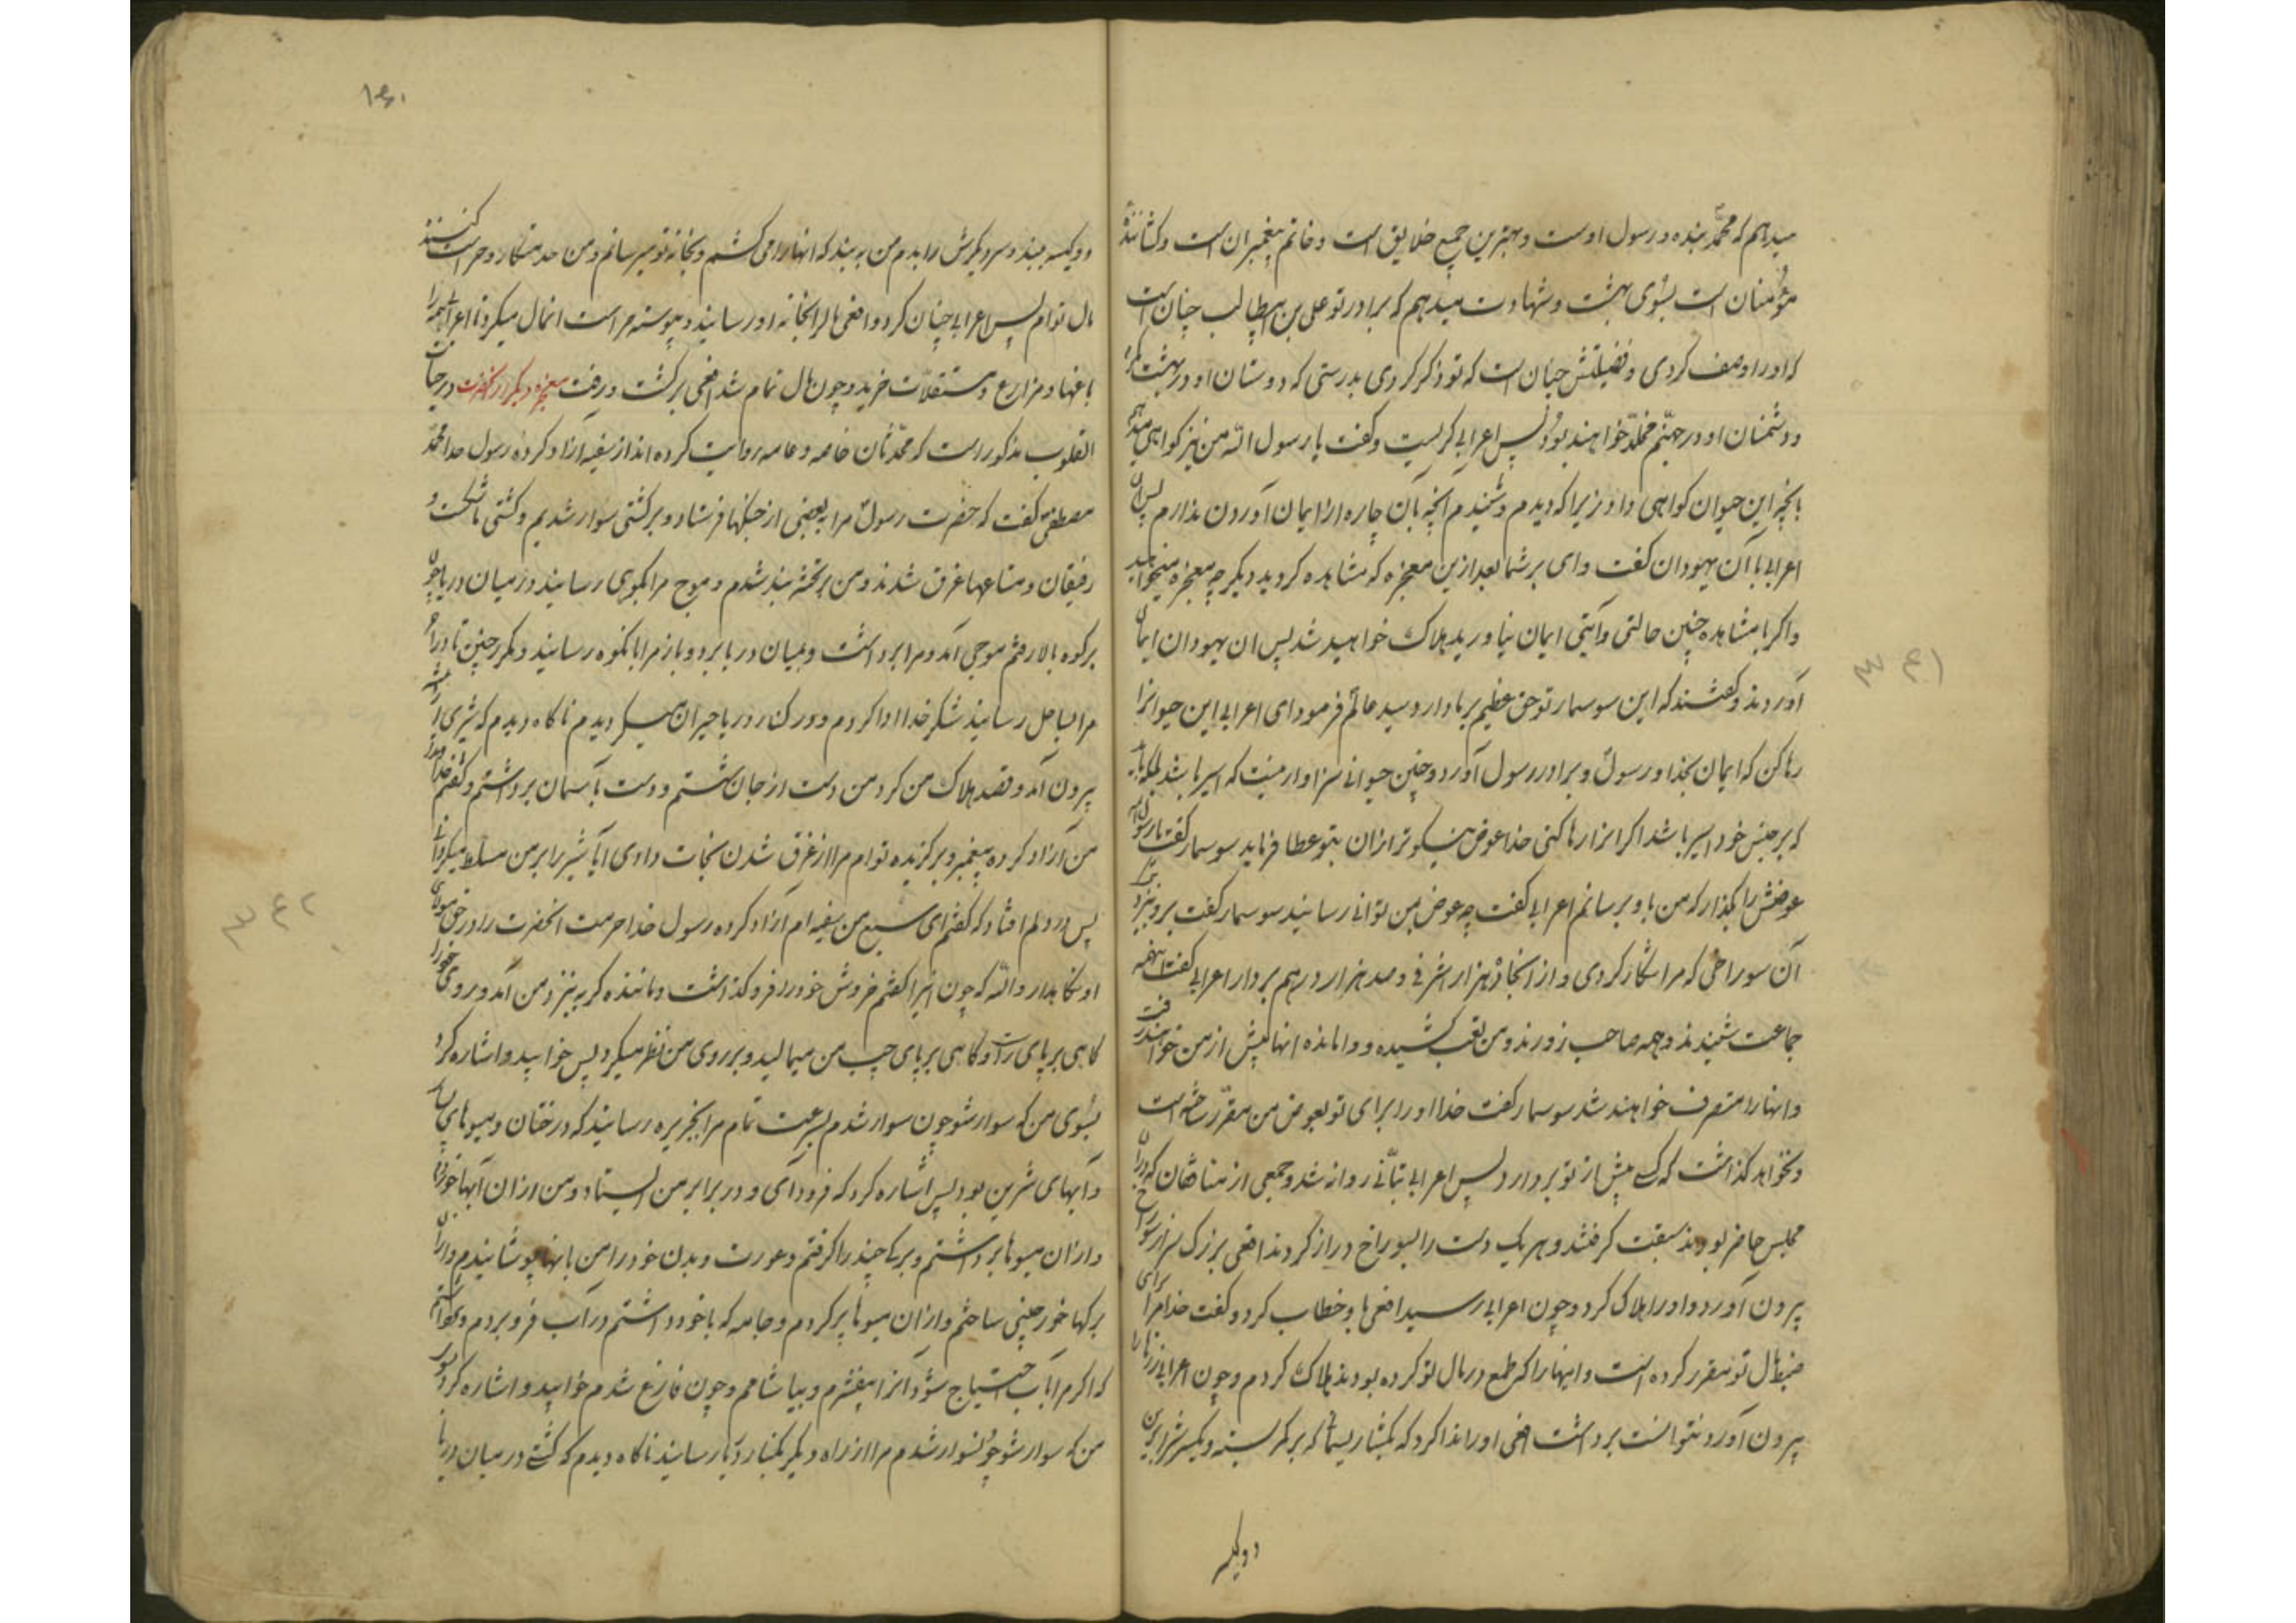 میدهم که محمد بنده و رسول اوست و بهترین جمیع خلایق است و خاتم پیغمبران است و کشاننده
مؤمنان است بسوی بهشت و شهادت میدهم که برادر تو علی بن ابیطالب چنان است
که او را وصف کردی و فضیلتش چنان است که تو ذکر کردی بدرستی که دوستان او در بهشت
و دشمنان او در جهنم مخلد خواهند بود پس اعرابی گریست و گفت یا رسول الله من نیز گواهی میدهم
بانچه این حیوان گواهی داد زیرا که دیدم و شنیدم آنچه بآن چاره از ایمان آوردن ندارم پس آن
اعرابی با آن یهودان گفت وای بر شما بعد ازین معجزه که مشاهده کردید دیگر چه معجزه میخواهید
و اگر با مشاهده چنین حالتی و آیتی ایمان نیاورید هلاک خواهید شد پس ان یهودان ایمان
آوردند و گفتند که این سوسمار تو حق عظیم بر ما دارد سید عالم فرمود ای اعرابی این حیوانرا
رها کن که ایمان بخدا و رسول و برادر رسول آورد و چنین حیوانی سزاوار نیست که اسیر باشد بلکه باید
که بر جنس خود امیر باشد اگر انرا رها کنی خدا عوض نیکوتر ازان بتو عطا فرماید سوسمار گفت یا رسول الله
عوضش را بگذار که من باو برسانم اعرابی گفت چه عوض بمن توانی رسانید سوسمار گفت برو بنزد
آن سوراخی که مرا شکار کردی و از انجا ده هزار اشرفی و صد هزار درهم بردار اعرابی گفت اینهمه
جماعت شنیدند و همه صاحب زورند و من تعب کشیده و وامانده انها پیش از من خواهند رفت
و انها را متصرف خواهند شد سوسمار گفت خدا او را برای تو بعوض من مقرر ساخته است
و نخواهد گذاشت که کسی پیش از تو بردارد پس اعرابی بتانی روانه شد و جمعی از منافقان که در آن
مجلس حاضر بودند سبقت گرفتند و هر یک دست را بسوراخ دراز کردند افعی بزرگ سر از سوراخ
بیرون آورد و او را هلاک کرد و چون اعرابی رسید افعی باو خطاب کرد و گفت خدا مرا برای
ضبط مال تو مقرر کرده است و اینها را که طمع در مال تو کرده بودند هلاک کردم و چون اعرابی زرها را
بیرون آورد نتوانست برداشت افعی او را ندا کرد که بگشا ریسمانی که بر کمر بسته و یکسرش را برین
دو کیسه
و دو کیسه ببند و سر دیگرش را بدم من به بند که انها را می کشم و بخانه تو میرسانم و من خدمتکار و حراست کننده
مال توام پس اعرابی چنان کرد و افعی مال را بخانه او رسانید و پیوسته حراست انمال میکرد تا اعرابی همه را
باغها و مزارع و مستقلات خرید و چون مال تمام شد افعی برگشت و رفت معجزه دیگر از آنحضرت در حیات
القلوب مذکور است که محدثان خاصه و عامه روایت کرده اند از سفینه آزاد کرده رسول خدا محمد
مصطفی گفت که حضرت رسول مرا به بعضی از جنگها فرستاد و بر کشتی سوار شدیم و کشتی ما شکست و
رفیقان و متاعها غرق شدند و من بر تخته بند شدم و موج مرا بکوهی رسانید در میان دریا چون
بر کوه بالا رفتم موجی آمد و مرا برداشت و بمیان دریا برد و باز مرا بانکوه رسانید و مکرر چنین تا در آخر
مرا بساحل رسانید شکر خدا ادا کردم و در کنار دریا حیران میگردیدم ناگاه دیدم که شیری از بیشه
بیرون آمد و قصد هلاک من کرد من دست از جان شستم و دست بآسمان برداشتم و گفتم خداوندا
من آزاد کرده پیغمبر و برگزیده توام مرا از غرق شدن نجات دادی آیا شیر را بر من مسلط میگردانی
پس در دلم افتاد که گفتم ای سبع من سفینه ام آزاد کرده رسول خدا حرمت انحضرت را در حق مولای
او نگاهدار و الله که چون اینرا گفتم خروش خود را فرو گذاشت و مانند گربه بنزد من آمد و روی خود را
گاهی بر پای راست و گاهی بر پای چپ من میمالید و بر روی من نظر میکرد پس خوابید و اشاره کرد
بسوی من که سوار شو چون سوار شدم بسرعت تمام مرا بجزیره رسانید که درختان و میوهای بسیار
و آبهای شیرین بود پس اشاره کرد که فرود آی و در برابر من ایستاد و من ازان آبها خوردم
و ازان میوها برداشتم و برگی چند را گرفتم و عورت و بدن خود را من بانها پوشانیدم و ازان
برگها خورجینی ساختم و ازان میوها پر کردم و جامه که با خود داشتم در آب فرو بردم و برداشتم
که اگر مرا بآب احتیاج شود آنرا بیفشرم و بیاشامم و چون فارغ شدم خوابید و اشاره کرد بسوی
من که سوار شو چون سوار شدم مرا از راه دیگر بکنار دریا رسانید ناگاه دیدم که کشتی در میان دریا